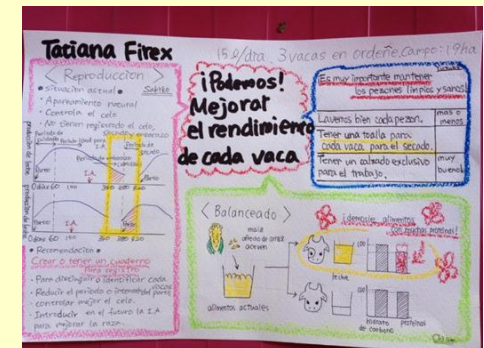 Tatiana Firex
15 l/día, 3 vacas en ordeñe. Campo: 19ha
< Reproduccion >
• situación actual •
• Apareamiento natural
• Controla el celo
• No tienen registrado el celo.
Parto
I.A.
0 días 60 100
Parto
I.A.
0 días 60 100
• Recomendación •
Crear o tener un cuaderno
para registro
- Para distinguir o identificar cada
vaca
- Reducir el periodo o intervalo del parto
- controlar mejor el celo.
- Introducir en el futuro la I.A
para mejorar la raza.
¡Podemos!
Mejorar
el rendimiento
de cada vaca
Es muy importante mantener
los pezones limpios y sanos!
Lavemos bien cada pezon.
mas o
menos
Tener una toalla para
cada vaca, para el secado.
Tener un calzado exclusivo
para el trabajo.
muy
bueno!
< Balanceado >
maíz
afrecho de arroz
alimentos actuales
leche
100
100
hidrato
de carbono
proteínas
¡demosle alimentos
con muchas proteínas!